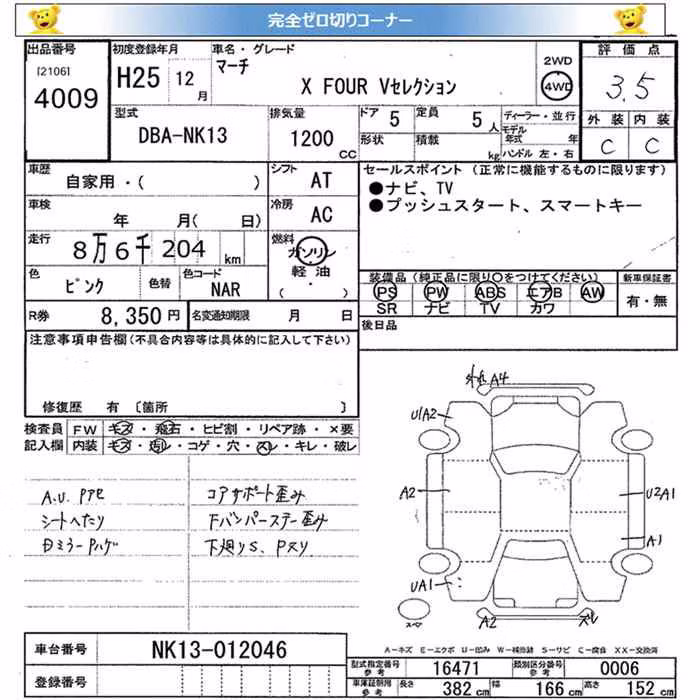 完全ゼロ切りコーナー
出品番号 初度登録年月 車名・グレード 評価点
[2106] H25 12月 マーチ 2WD
4009 X FOUR Vセレクション 4WD 3.5
型式 排気量 ドア 5 定員 5人 ディーラー・並行 外装 内装
DBA-NK13 1200cc 形状 積載 kg モデル年式 年 C C
ハンドル 左・右
車歴 シフト セールスポイント (正常に機能するものに限ります)
自家用・( ) AT ●ナビ、TV
車検 冷房 ●プッシュスタート、スマートキー
年 月( 日) AC
走行 燃料
8万6千204km ガソリン
色 色替 色コード 軽油 装備品 (純正品に限り○をつけてください) 新車保証書
ピンク NAR ・( ) PS PW ABS エアB AW 有・無
SR ナビ TV カワ
R券 8,350円 名変通知期限 月 日 後日品
注意事項申告欄(不具合内容等は具体的に記入して下さい)
修復歴 有 〔箇所 〕
検査員 FW キズ・飛石・ヒビ割・リペア跡・×要
記入欄 内装 キズ・汚レ・コゲ・穴・スレ・キレ・破レ
A.U Pアセ コアサポート歪み
シートへたり Fバンパーステー歪み
Dミラー Pハゲ 下廻りS、Pスリ
外れ A4
U1A2
A2 U2A1
A1
UA1
スペア A2 スレ
A-キズ E-エクボ U-凹み W-補修跡 S-サビ C-腐食 XX-交換済
車台番号 NK13-012046
型式指定番号 参考 16471 類別区分番号 参考 0006
登録番号
車庫証明用 参考 長さ 382cm 幅 166cm 高さ 152cm